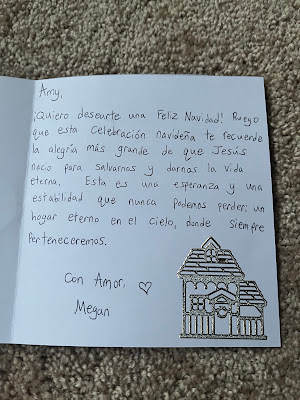 Amy,
¡Quiero desearte una Feliz Navidad! Ruego
que esta celebración navideña te recuerde
la alegría más grande de que Jesús
nacio para salvarnos y darnos la vida
eterna. Esta es una esperanza y una
estabilidad que nunca podemos perder; un
hogar eterno en el cielo, donde siempre
perteneceremos.
Con Amor,
Megan